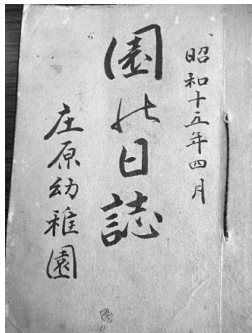 昭和十五年四月
園の日誌
庄原幼稚園